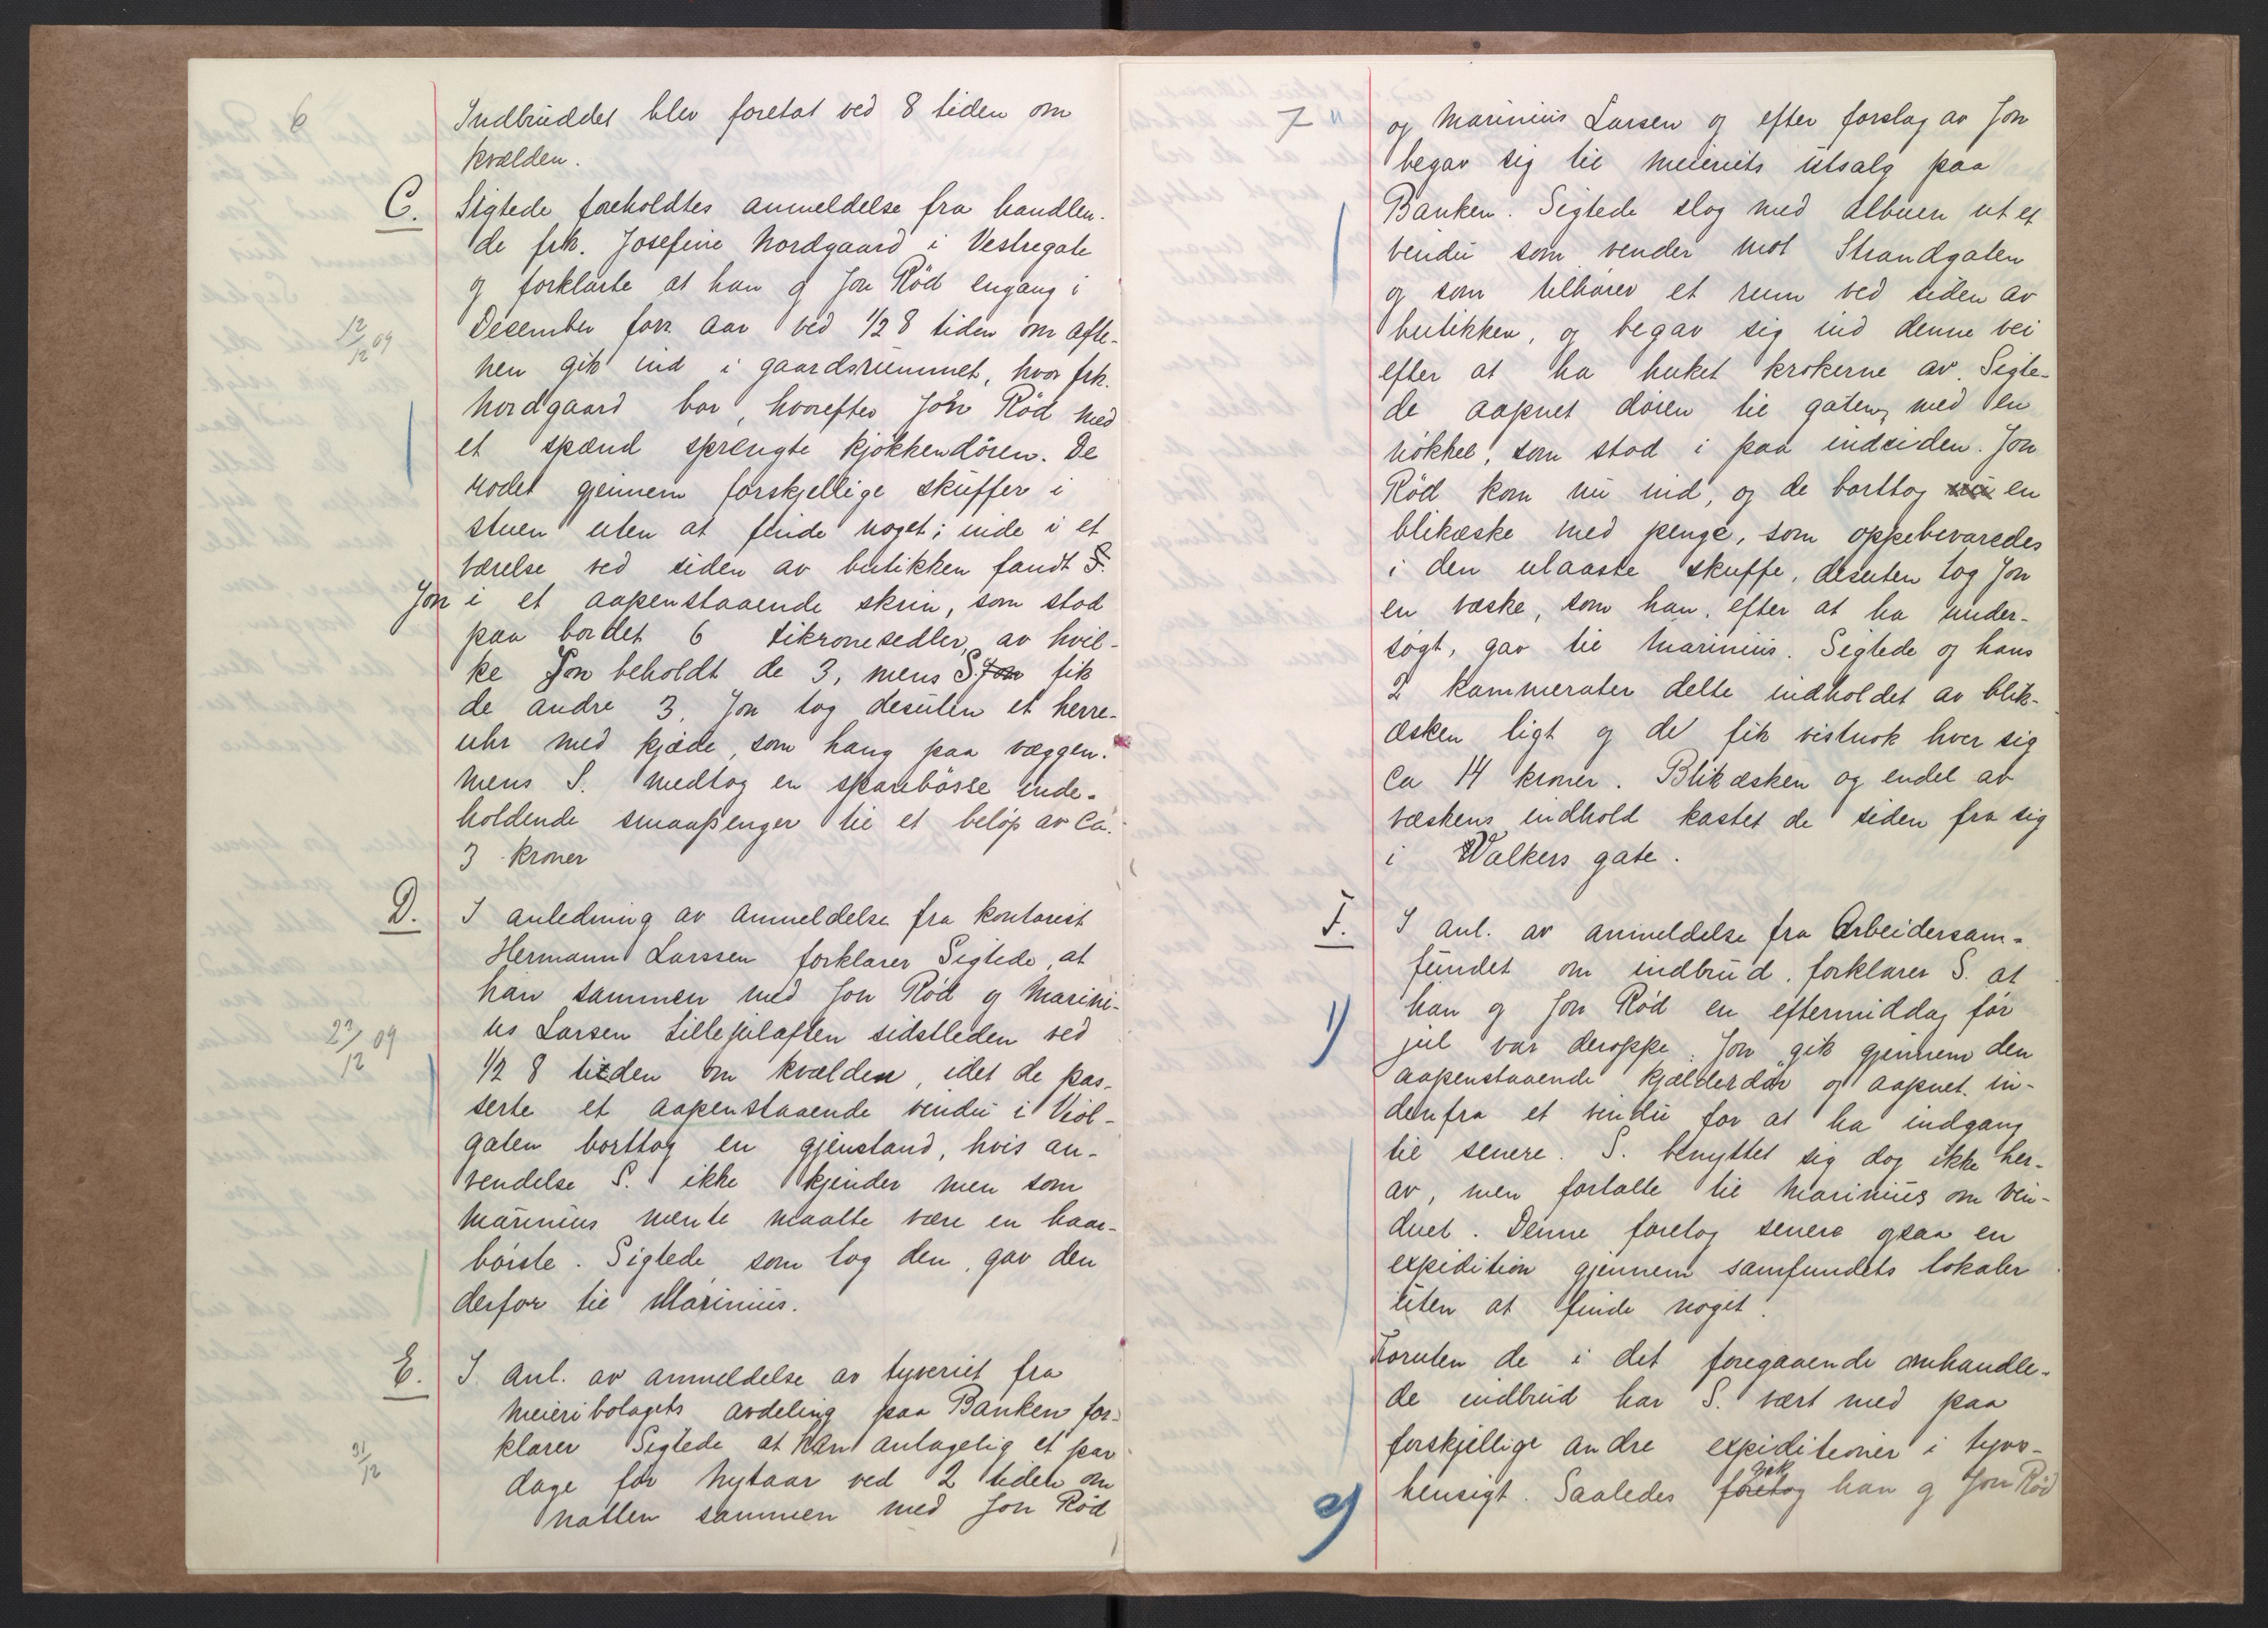 6
Indbruddet blev foretat ved 8 tiden om
kvælden.
C. Sigtede foreholdtes anmeldelse fra handlen-
de frk. Josefine Nordgaard i Vestregate
og forklarte at han og Jon Rød engang i
12/12 09 December forr. aar ved 1/2 8 tiden om afte-
nen gik ind i gaardsrummet, hvor frk.
Nordgaard bor, hvorefter Jon Rød med
et spænd sprengte kjøkkendøren. De
rodet gjennem forskjellige skuffer i
stuen uten at finde noget; inde i et
værelse ved siden av butikken fandt S.
Jon i et aapenstaaende skrin, som stod
paa bordet 6 tikronesedler, av hvil-
ke Jon beholdt de 3, mens S. Jon fik
de andre 3. Jon tog desuten et herre-
uhr med kjæde, som hang paa væggen.
mens S. medtog en sparebøsse inde-
holdende smaapenger til et beløp av ca.
3 kroner
D. I anledning av anmeldelse fra kontorist
Hermann Larssen forklarer Sigtede, at
han sammen med Jon Rød og Marini-
us Larsen Lillejulaften sidstleden ved
23/12 09
1/2 8 tiden om kvælden, idet de pas-
serte et aapenstaaende vindu i Viol-
gaten borttog en gjenstand, hvis an-
vendelse S. ikke kjender men som
Marinius mente maatte være en haar-
børste. Sigtede som tog den, gav den
derfor til Marinius.
E. I anl. av anmeldelse av tyveriet fra
meieribolagets avdeling paa Banken for-
klarer Sigtede at han antagelig et par
31/12
dage før Nytaar ved 2 tiden om
natten sammen med Jon Rød
7
og Marinius Larsen og efter forslag av Jon
begav sig til meieriets utsalg paa
Banken. Sigtede slog med albuen ut et
vindu som vender mot Strandgaten
og som tilhører et rum ved siden av
butikken, og begav sig ind denne vei
efter at ha huket krokerne av. Sigte-
de aapnet døren til gaten, med en
nøkkel, som stod i paa indsiden. Jon
Rød kom nu ind, og de borttog nu en
blikæske med penge, som oppebevaredes
i den ulaaste skuffe, desuten tog Jon
en væske, som han, efter at ha under-
søgt, gav til Marinius. Sigtede og hans
2 kammerater delte indholdet av blik-
æsken ligt og de fik vistnok hver sig
ca 14 kroner. Blikæsken og endel av
væskens indhold kastet de siden fra sig
i Walkers gate.
F. I anl. av anmeldelse fra Arbeidersam-
fundet om indbrud, forklarer S. at
1) han og Jon Rød en eftermiddag før
jul var deroppe. Jon gik gjennem den
aapenstaaende kjælderdør og aapnet in-
denfra et vindu for at ha indgang
til senere. S. benyttet sig dog ikke her-
av, men fortalte til Marinius om vin-
duet. Denne foretog senere ogsaa en
expedition gjennem samfundets lokaler
uten at finde noget.
Foruten de i det foregaaende omhandle-
de indbrud har S. vært med paa
forskjellige andre expiditioner i tyvs-
gik
2) hensigt. Saaledes foretog han og Jon Rød